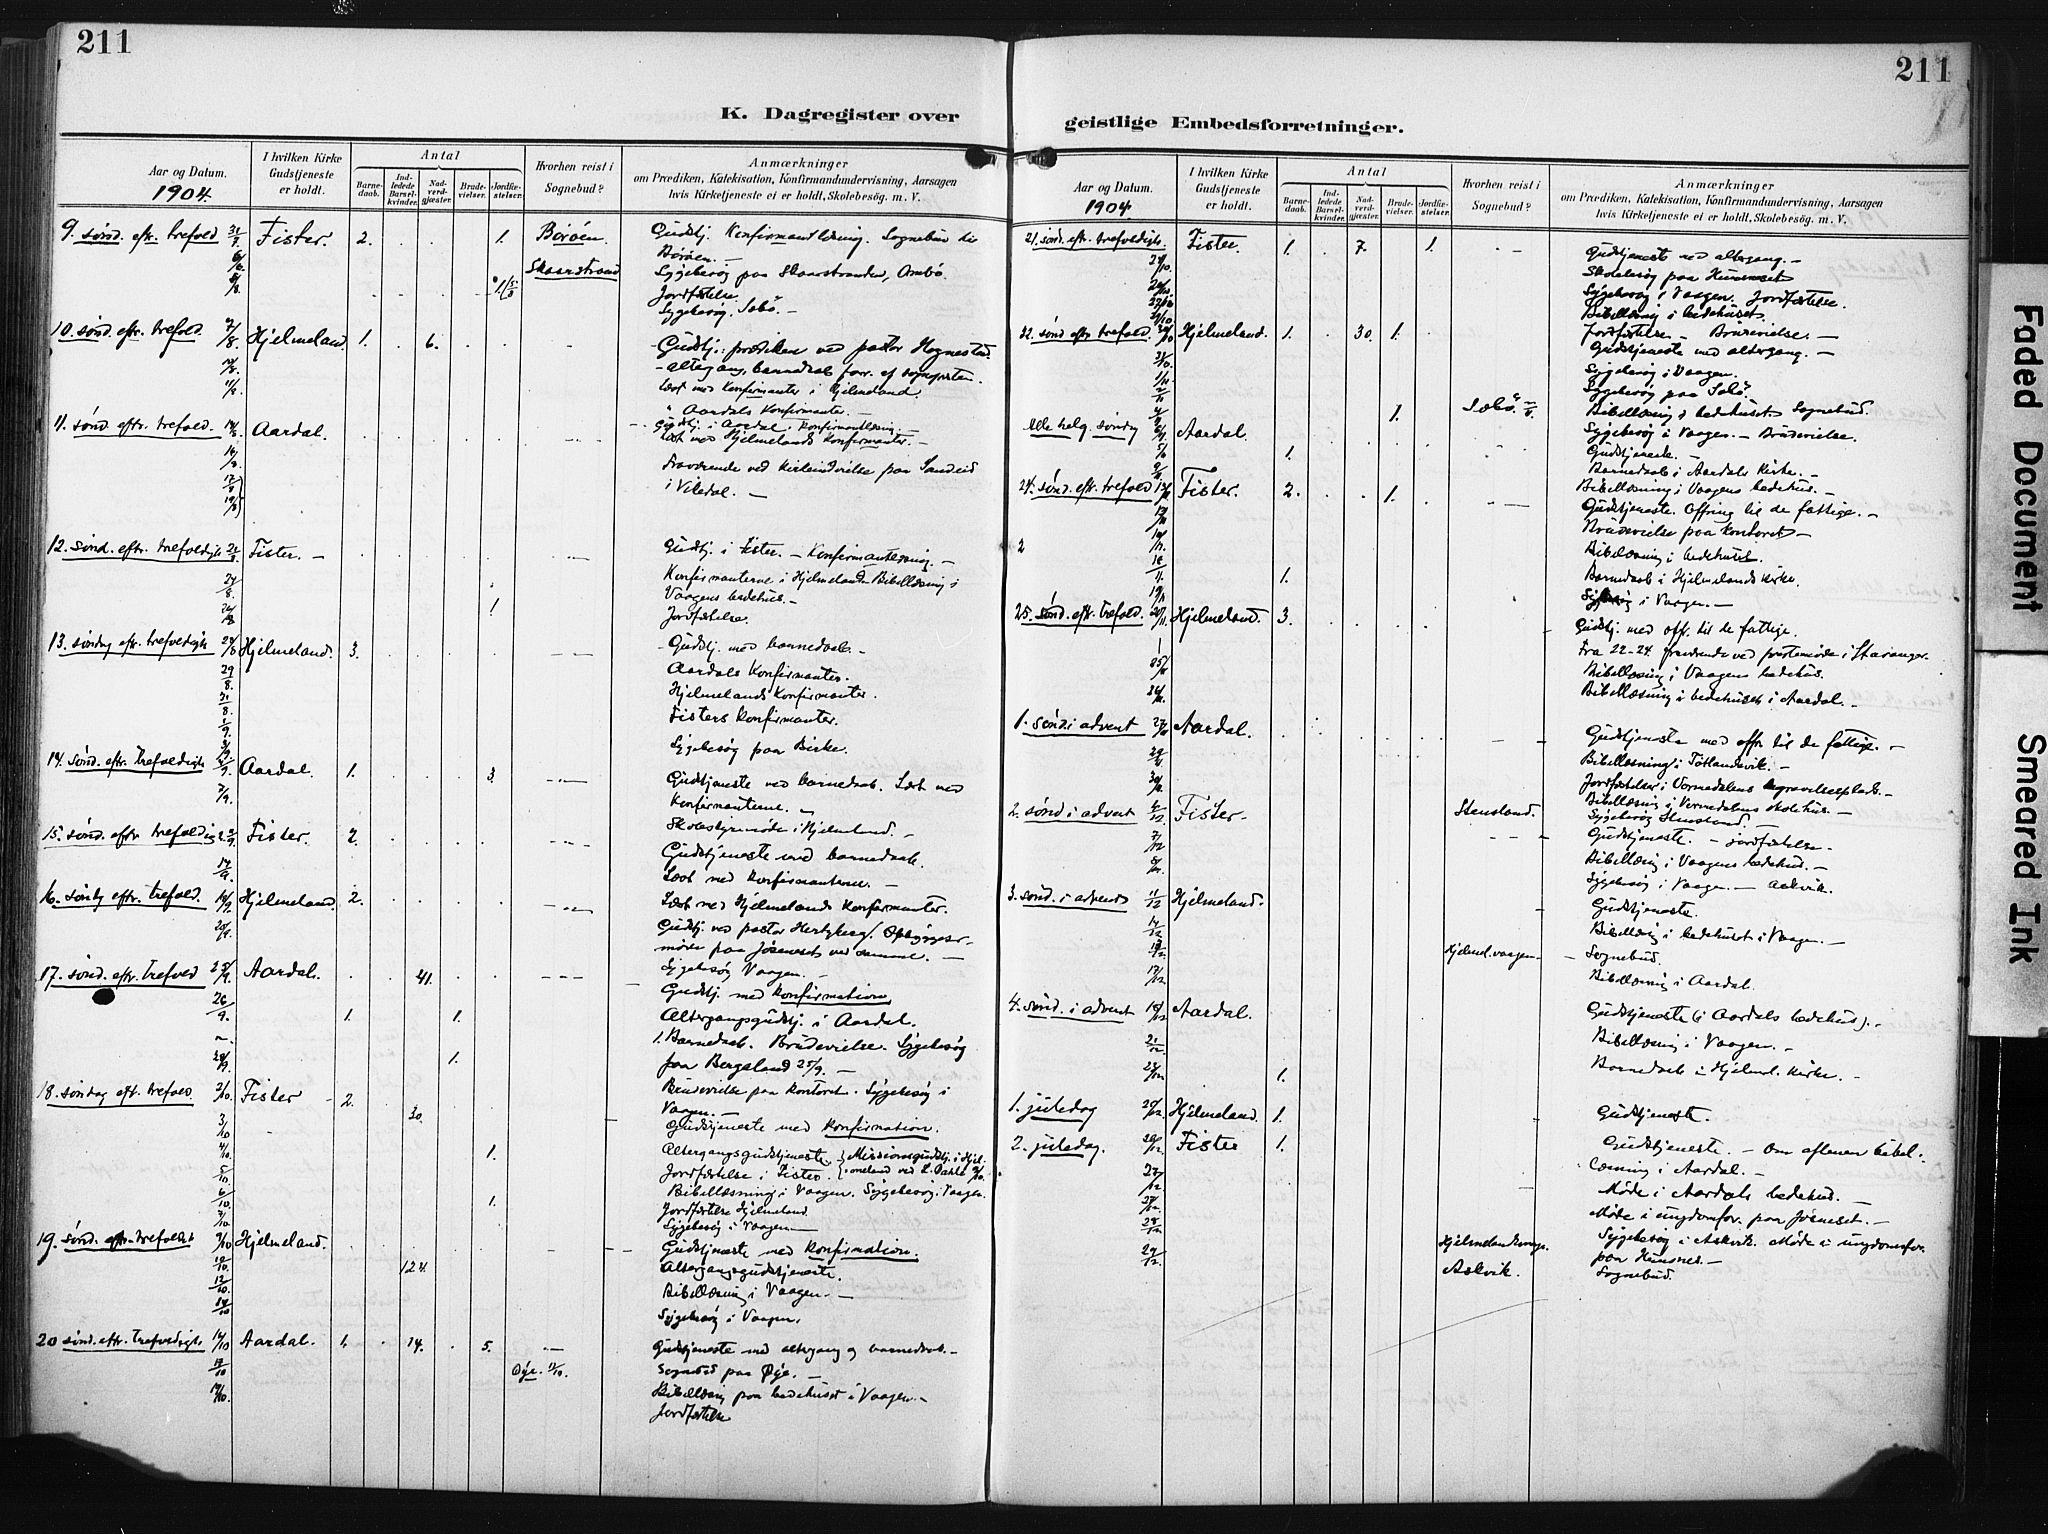 211
K. Dagregister over
Aar og Datum.
1904.
I hvilken Kirke
Gudstjeneste
er holdt.
Antal
Barne-
daab.
Ind-
ledede
Barsel-
kvinder.
Nad-
verd-
gjæster.
Brude-
vielser.
Jordfæ-
stelser.
Hvorhen reist i
Sognebud?
Anmærkninger
om Prædiken, Katekisation, Konfirmandundervisning, Aarsagen
hvis Kirketjeneste ei er holdt, Skolebesøg. m. V.
9. sønd. eft. trefold 31/7. Fister. 2. 1. Børøen. Gudstj. Konfirmandlæsning. Sognebud til
Børøen. —
Skaarstrand Sygebesøg paa Skaarstranden, Ombo.
Jordfæstelse.
Sygebesøg. Sæbø. —
10. sønd. eftr. trefold. 7/8. Hjelmeland. 1. 6. Gudstj.: prædiken ved pastor Hognestad.
- altergang, barnedaab forr. af sognepresten.
Læst med Konfirmanter i Hjelmeland.
" Aardals Konfirmanter. —
11. sønd. eftr. trefold. 14/8. Aardal. Gudstj. i Aardal. Konfirmantlæsning. —
Læst med Hjelmelands Konfirmanter. —
Fraværende ved kirkeindvielse paa Sandeid
i Vikedal. —
12. sønd. eftr. trefoldigh. 21/8 Fister. — Gudstj. i Fister. — Konfirmantlæsning. —
24/8. Konfirmanterne i Hjelmeland. Bibellæsning i
Vaagens bedehus. —
1. Jordfæstelse.
13. søndag eftr. trefoldigh. 28/8 Hjelmeland. 3. Gudstj. med barnedaab. —
29/8. Aardals Konfirmanter.
31/8. Hjelmelands Konfirmanter.
1/9. Fisters Konfirmanter.
Sygebesøg paa Birke.
14. sønd. eftr. trefoldigh. 4/9. Aardal. 1. 3. Gudstjeneste med barnedaab. Læst med
Konfirmanterne. —
7/9. Skolestyremøde i Hjelmeland. —
15. sønd. eftr. trefoldig Fister. 2. Gudstjeneste med barnedaab.
Læst med konfirmanterne. —
16. sønd. eftr. trefold. Hjelmeland. 2. Læst med Hjelmelands Konfirmanter.
Gudstj. ved pastor Hertzberg. Opbyggelses-
møde paa Jøsneset ved samme. —
Sygebesøg Vaagen. —
17. sønd. eftr. trefold 25/9. Aardal. 41. Gudstj. med konfirmation.
26/9. 1. 1. Altergangsgudstj. i Aardal.
1. Barnedaab. Brudevielse. Sygebesøg
1. paa Bergeland 25/9. —
18. søndag eft. trefold. 2/10. Fister 2. Brudevielse paa kontoret. Sygebesøg i
Vaagen. —
3/10 30. Gudstjeneste med konfirmation.
4/10. 1. Altergangsgudstjeneste. Missionsgudstj. i Hjel-
5/10. Jordfæstelse i Fister. meland ved L. Dahle 2/10.
6/10 1. Bibellæsning i Vaagen. Sygebesøg i Vaagen.
7/10 Jordfæstelse Hjelmeland.
Sygebesøg i Vaagen —
19. sønd. eftr. trefoldst 9/10 Hjelmeland. Gudstjeneste med konfirmation.
10/10. 124. Altergangsgudstjeneste.
12/10. Bibellæsning i Vaagen. —
Sygebesøg i Vaagen.
20 sønd. eftr. trefoldigh. 16/10 Aardal. 1. 14. 5. Gudstjeneste med altergang og barnedaab. —
17/10 Øie. 17/10. Sognebud paa Øye. —
19/10. Bibellæsning paa bedehuset i Vaagen —
Jordfæstelse
211
geistlige Embedsforretninger.
Aar og Datum.
1904
I hvilken Kirke
Gudstjeneste
er holdt.
Antal
Barne-
daab.
Ind-
ledede
Barsel-
kvinder.
Nad-
verd-
gjæster.
Brude-
vielser.
Jordfæ-
stelser.
Hvorhen reist i
Sognebud?
Anmærkninger
om Prædiken, Katekisation, Konfirmandundervisning, Aarsagen
hvis Kirketjeneste ei er holdt, Skolebesøg, m. V.
21. sønd. eftr. trefoldigh. Fister. 1. 7. 1. Gudstjeneste med altergang. —
Skolebesøg paa Husneset
Sygebesøg i Vaagen. Jordfæstelse.
Bibellæsning i bedehuset.
Jordfæstelse — Brudevielse. —
22. sønd. eftr. trefold. 30/10 Hjelmeland. 1. 30. 1. Gudstjeneste med altergang. —
31/10. Sygebesøg i Vaagen.
1/11 Sygebesøg paa Sæbø.
1. Sæbø. Bibellæsning i bedehuset Sognebud.
Sygebesøg i Vaagen. — Brudevielse.
Alle helg. søndag 6/11. Aardal. Gudstjeneste. —
1. Barnedaab i Aardals Kirke. —
Bibellæsning i Vaagens bedehus. —
24. sønd. eftr. trefold 13/11 Fister. 2. 1. Gudstjeneste. Offring til de fattige. —
Brudevielse paa kontoret —
2 Bibellæsning i bedehuset.
1. Barnedaab i Hjelmelands Kirke.
i Vaagen. —
25. sønd. eftr. trefold. 20/11. Hjelmeland. 3. Gudstj. med offr. til de fattige.
Fra 22-24. fraværende ved prestemøde i Stavanger.
Bibellæsning i Vaagens bedehus.
Bibellæsning i bedehuset i Aardal. —
1. sønd. i advent 27/11 Aardal. Gudstjeneste med offr til de fattige. —
Bibellæsning i Tøtlandsvik. —
Jordfæstelser i Vormedalens begravelsesplads. —
Bibellæsning i Vormedalens skolehus. —
2. sønd i advent 4/12 Fister. Stensland. Sygebesøg Stensland.
Gudstjeneste. — jordfæstelse —
7/12 Bibellæsning i Vaagens bedehus. —
Sygebesøg i Vaagen — Askvik.
3. sønd. i advent 11/12 Hjelmeland. Gudstjeneste.
14/12 Bibellæsning i bedehuset i Vaagen. —
Hjelmel.vaagen Sognebud.
17/12 Bibellæsning i Aardal.
4. sønd. i advent 18/12 Aardal. Gudstjeneste (i Aardals bedehus). —
21/12. Bibellæsning i Vaagen. —
1. Barnedaab i Hjelmel. Kirke. —
1. juledag 25/12. Hjelmeland 1. Gudstjeneste.
2. juledag. 26/12. Fister 1. Gudstjeneste. — Om aftenen bibel-
læsning i Aardal. —
27/12 Møde i Aardals bedehus. —
Møde i ungdomsfor. paa Jøsneset. —
28/12 Sygebesøg i Askvik. Møde i ungdomsfor.
29/12 Askvik. paa Husnes. —
Sognebud.
Faded Document
Smeared Ink